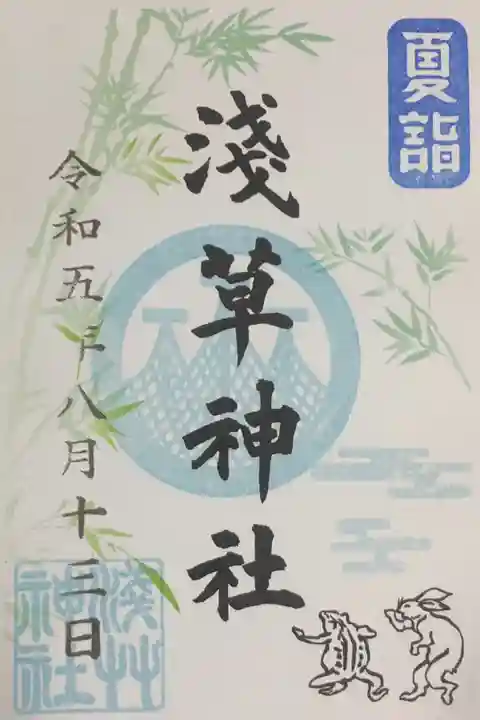 夏詣
淺草神社
令和五年八月十三日
淺草
神社